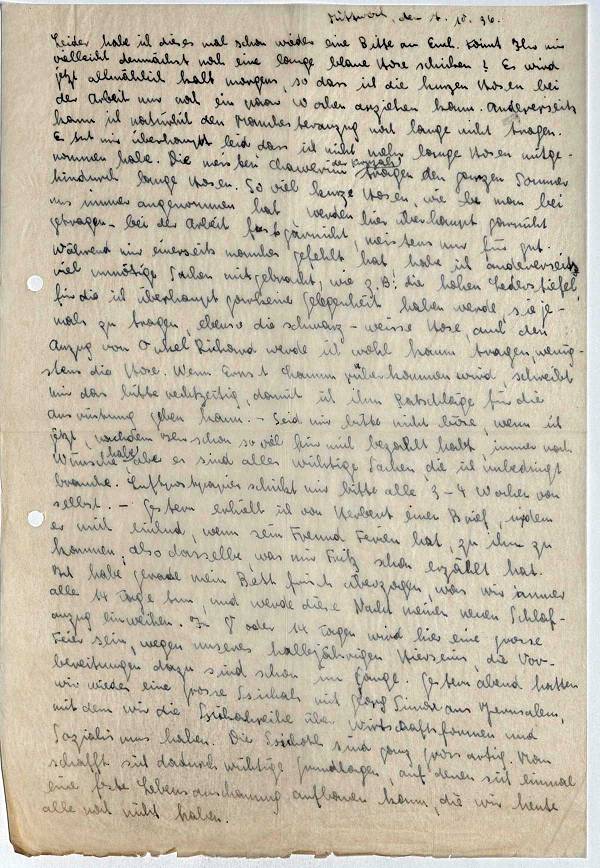 Mittwoch, den 7. 10. 36.
Leider habe ich dieses mal schon wieder eine Bitte an Euch. Könnt Ihr mir
vielleicht demnächst noch eine lange blaue Hose schicken? Es wird
jetzt allmählich kalt morgens, so dass ich die kurzen Hosen bei
der Arbeit nur noch ein paar Wochen anziehen kann. Andererseits
kann ich natürlich den Manchesteranzug noch lange nicht tragen.
Es tut mir überhaupt leid dass ich nicht mehr lange Hosen mitge-
nommen habe. Die meisten Chawerim der Kwuzah tragen den ganzen Sommer
hindurch lange Hosen. So viel kurze Hosen, wie man bei
uns immer angenommen hat, werden hier überhaupt garnicht
getragen - bei der Arbeit fast garnicht, meistens nur für gut.
Während mir einerseits manches gefehlt hat habe ich andererseits
viel unnötige Sachen mitgebracht, wie z.B. die hohen Lederstiefel,
für die ich überhaupt garkeine Gelegenheit haben werde, sie je-
mals zu tragen, ebenso die schwarz-weisse Hose, auch den
Anzug von Onkel Richard werde ich wohl kaum tragen, wenig-
stens die Hose. Wenn Ernst Chamm rüberkommen wird schreibt
mir das bitte rechtzeitig, damit ich ihm Ratschläge für die
Ausrüstung geben kann. - Seid mir bitte nicht böse, wenn ich
jetzt, nachdem schon so viel für mich bezahlt habt, immer noch
Wünsche habe aber es sind alles wichtige Sachen, die ich unbedingt
brauche. Luftpostpapier schickt mir bitte alle 3-4 Wochen von
selbst. - Gestern erhielt ich von Herbert einen Brief, indem
er mich einlud, wenn sein Freund Ferien hat, zu ihm zu
kommen; also dasselbe, was mir Fritz schon erzählt hat.
habe gerade mein Bett frisch überzogen, was wir immer
alle 14 Tage tun, und werde diese Nacht meinen neuen Schlaf-
anzug einweihen. In 8 oder 14 Tagen wird hier eine grosse
Feier sein, wegen unseres halbjährigen Hierseins, die Vor-
bereitungen dazu sind schon im Gange. Gestern abend hatten
wir wieder eine grosse Ssichah mit Georg Simon aus Jerusalem,
mit dem wir die Ssichahreihe über Wirtschaftsformen und
Sozialismus haben. Die Ssichoth sind ganz grossartig. Man
schafft sich dadurch wichtige Grundlagen, auf denen sich einmal
eine feste Lebensanschauung aufbauen kann, die wir heute
alle noch nicht haben.